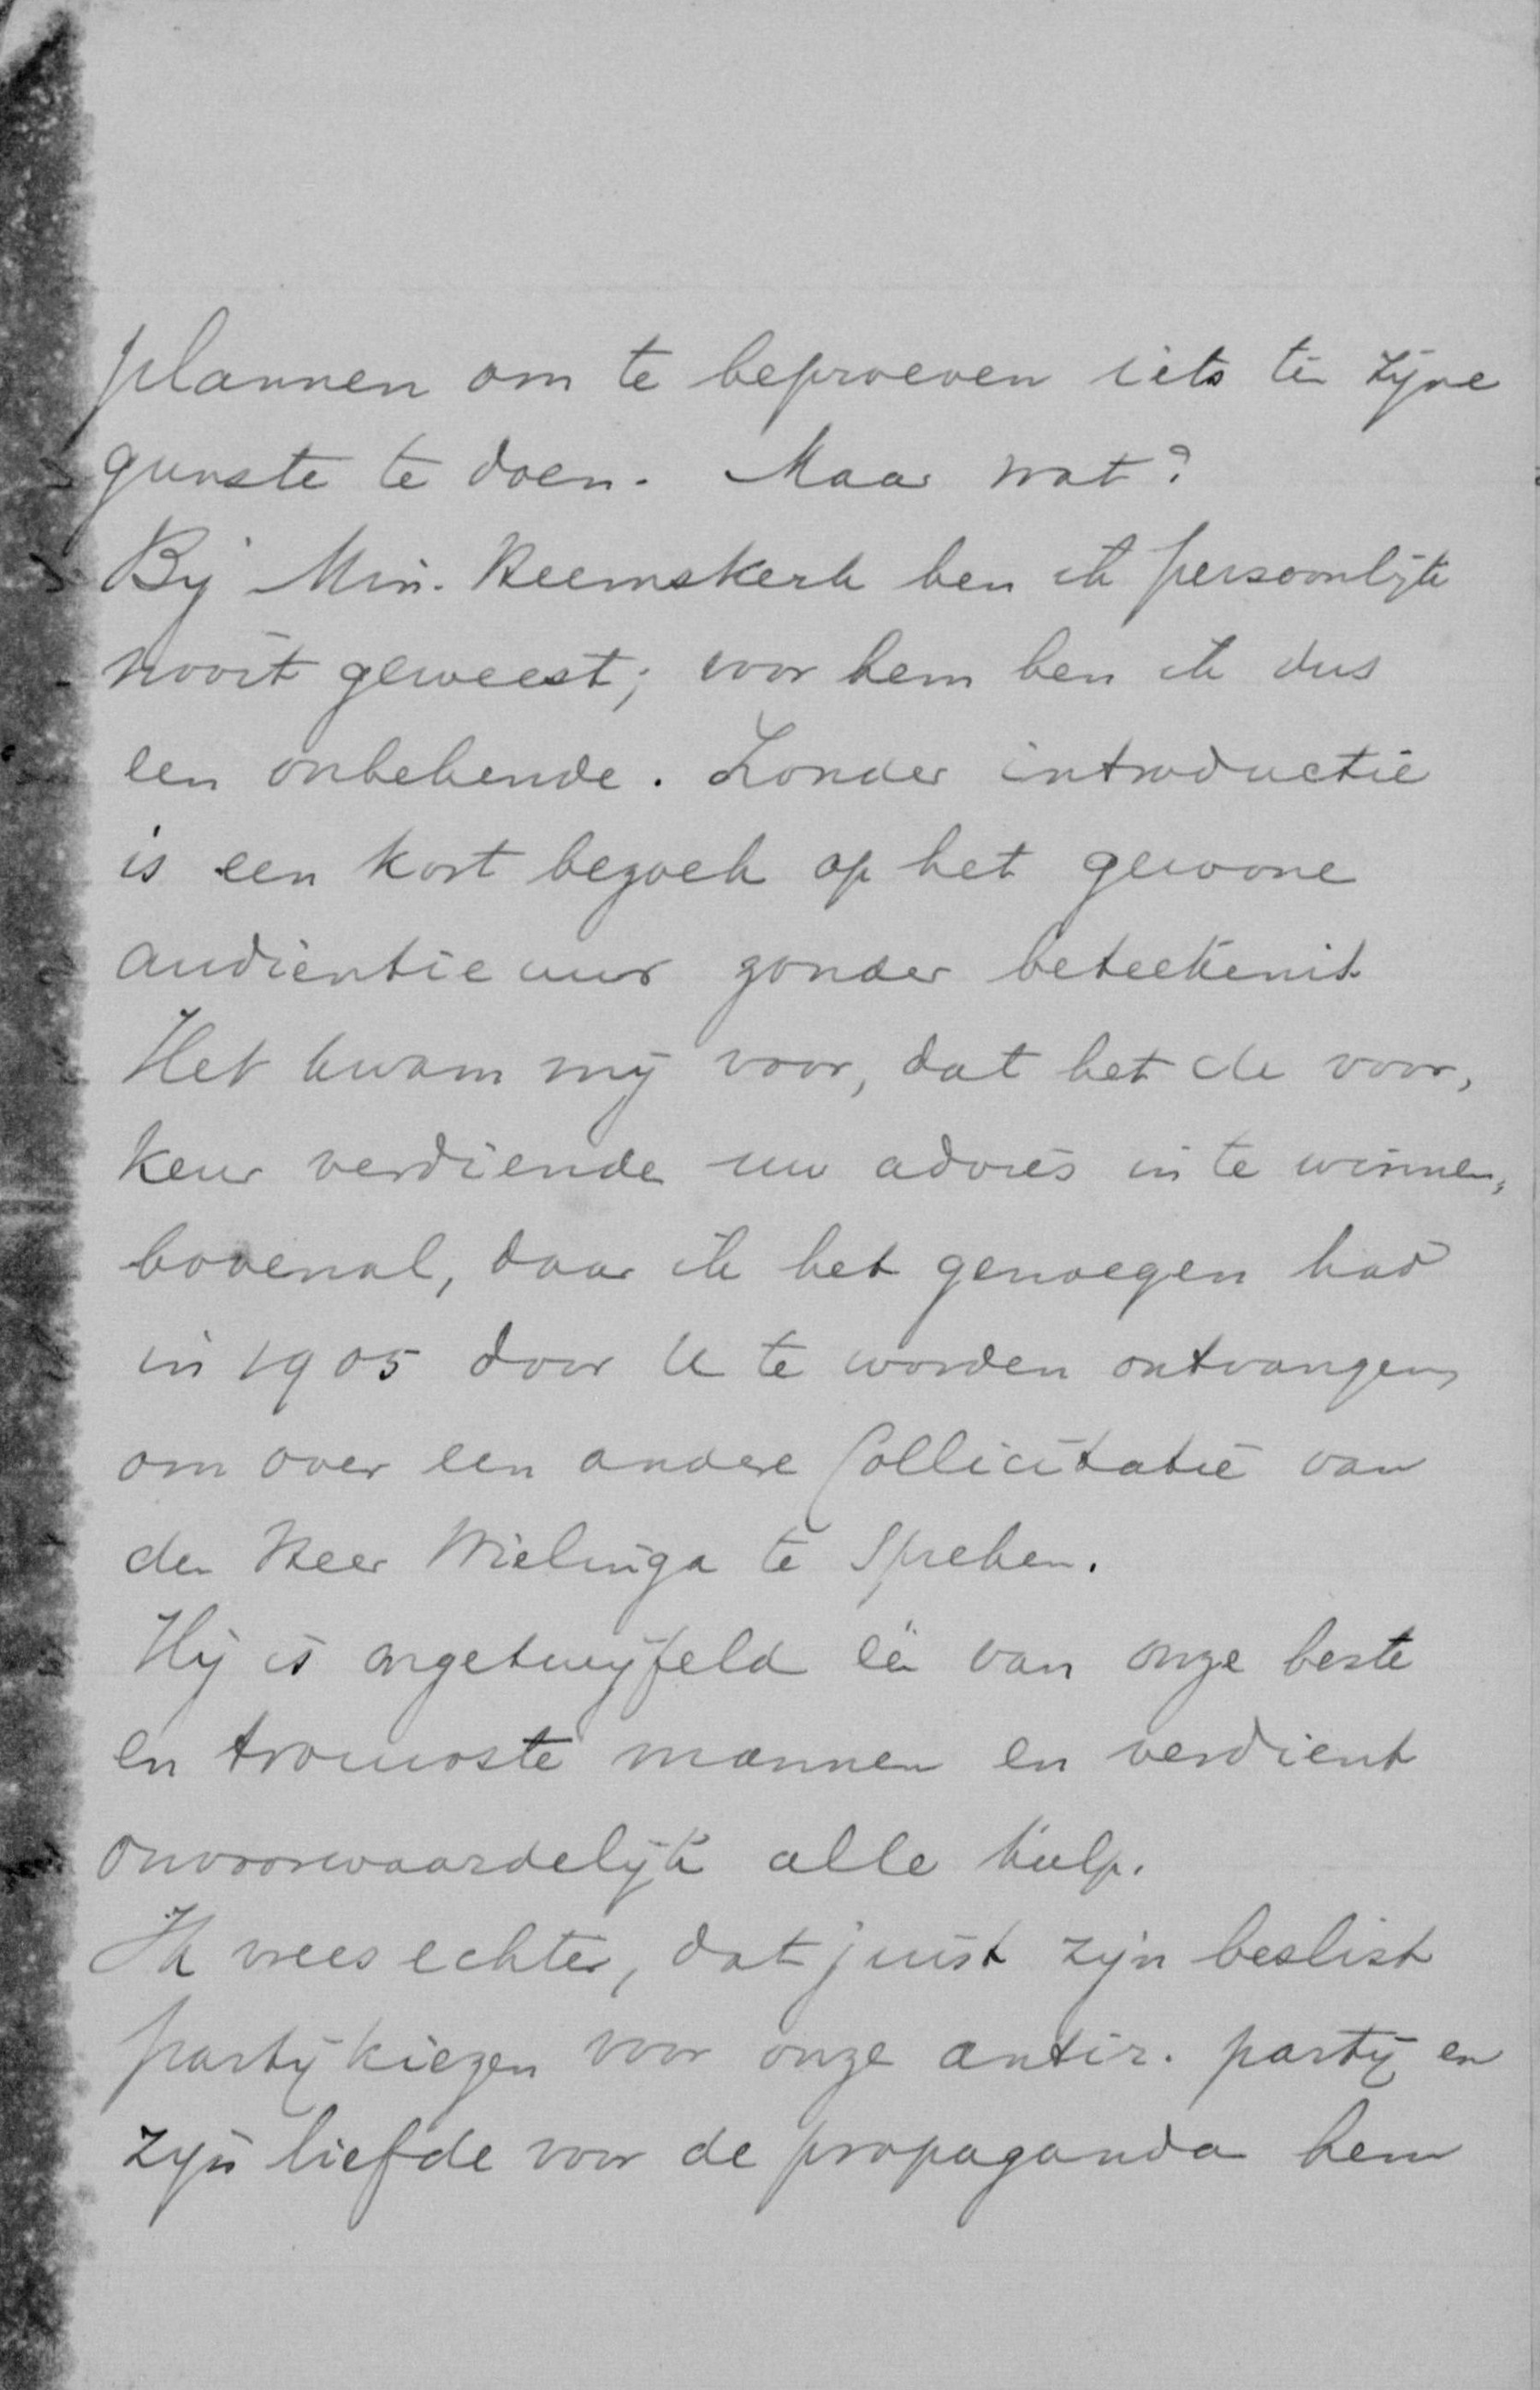 plannen om te beproeven iets te zijne
gunste te doen. Maar wat?
Bij Min. Heemskerk ben ik persoonlijk
nooit geweest; voor hem ben ik dus
een onbekende. Zonder introductie
is een kort bezoek op het gewone
audientieuur zonder beteekenis
Het kwam mij voor, dat het de voor,
keur verdiende uw advies in te winnen,
bovenal, daar ik het genoegen had
in 1905 door U te worden ontvangen,
om over een andere sollicitatie van
den Heer Wielinga te spreken.
Hij is ongetwijfeld één van onze beste
en trouwste mannen en verdient
onvoorwaardelijk alle hulp.
Ik vrees echter, dat juist zijn beslist
partijkiezen voor onze antir. partij en
zijn liefde voor de propaganda hem